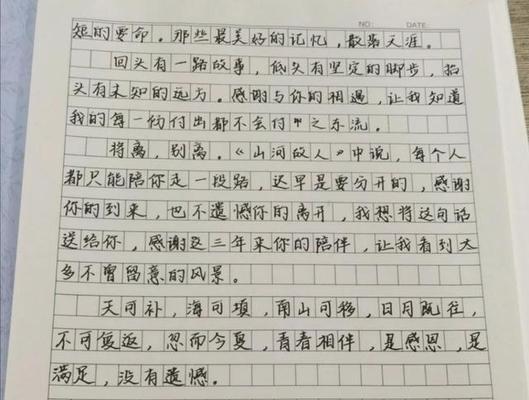 NO: DATE:
短的要命。那些最美好的记忆，散落天涯。
回头有一路故事，低头有坚定的脚步，抬
头有未知的远方。感谢与你的相遇，让我知道
我的每一份付出都不会付 之东流。
将离，别离。《山河故人》中说，每个人
都只能陪你走一段路，迟早是要分开的，感谢
你的到来，也不遗憾你的离开，我想将这句话
送给你，感谢这三年来你的陪伴，让我看到太
多不曾留意的风景。
天可补，海可填，南山可移，日月既往，
不可复返，忽而今夏，青春相伴，是感恩，是
满足，没有遗憾。